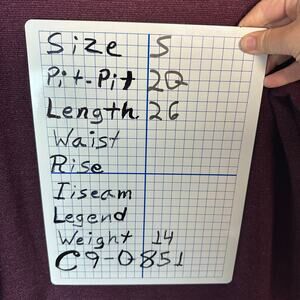 Size S
Pit-Pit 20
Length 26
Waist
Rise
Iiseam
Legend
Weight 14
C9-0851